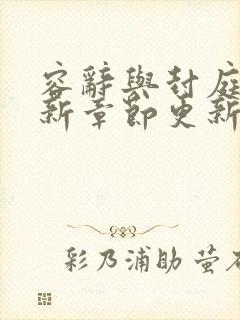 容辭與封庭
新章節更新
彩乃浦助 萤石